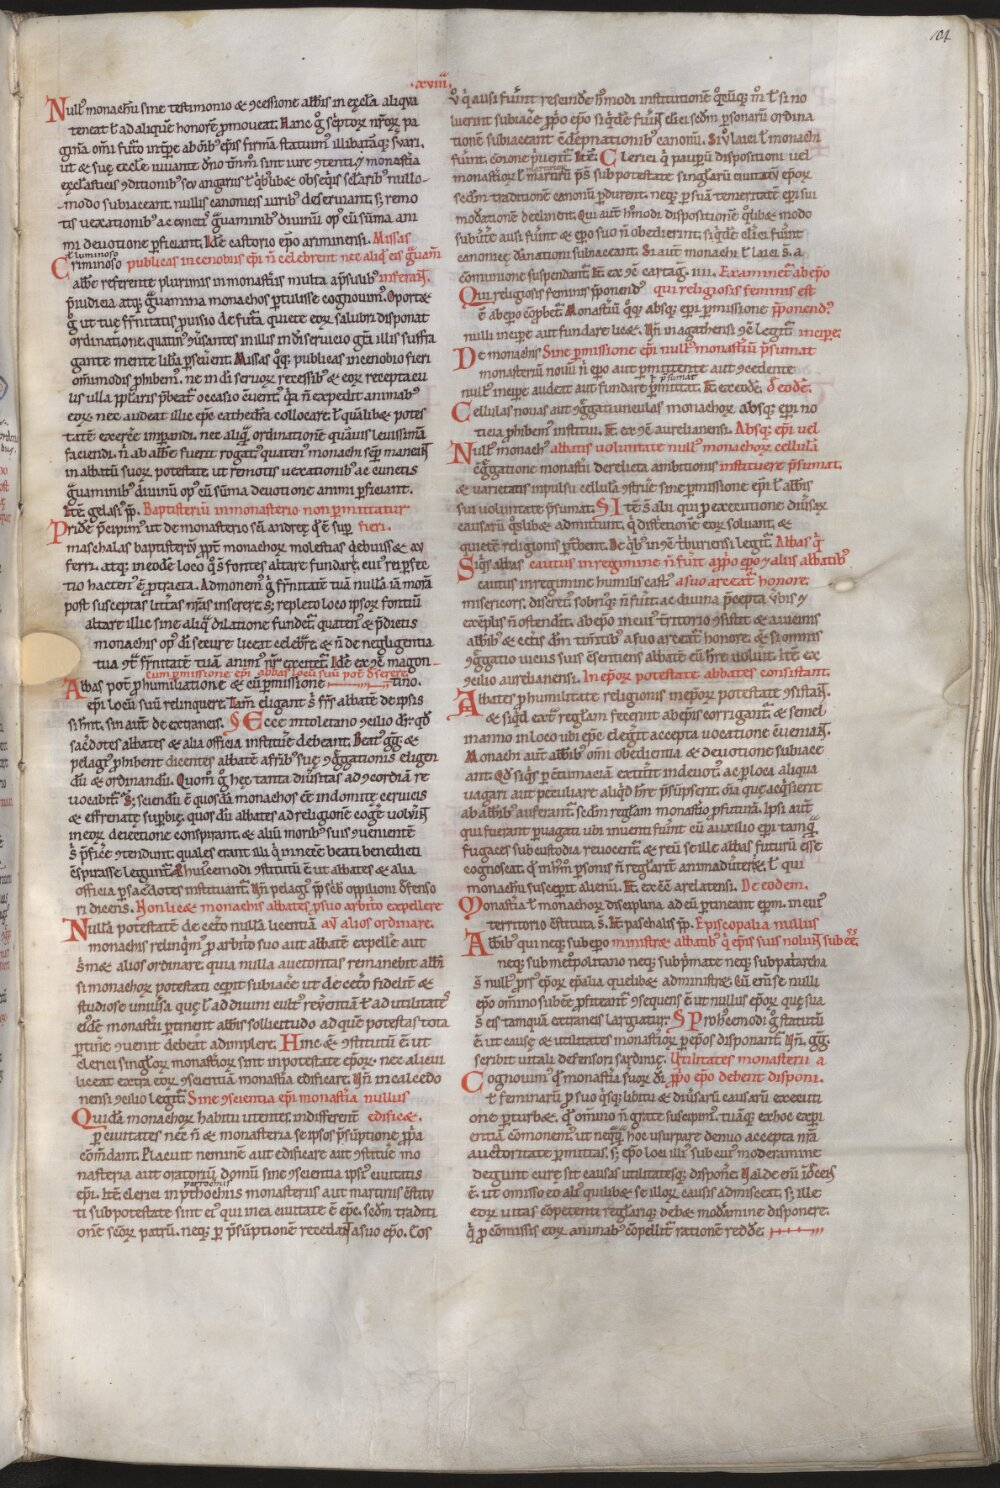 104
.xviii.
Null' monachū sine testimonio & ꝯcessione abb̄is in ęccl̄a aliqua
teneat ł ad aliquē honorē ꝓmoueat. Hanc g̊ sc̄ptoꝝ nr̄oꝝ pa
ginā om̄i futuro intēpe ab om̄ib' ep̄is firmā statuim' illibatāq; ẜuari.
ut & suę eccl̄e iuuante dn̄o tm̄m̊ sint iure ꝯtenti, & monast̄ia
ęccl̄asticis ꝯditionib' seu angariis ł qͥb'libet obseqͥis sc̄larib' nullo-
modo subiaceant. nullis canonicis iurib' deseruiant. s; remo
tis uexationib' ac cunctis g̃uaminib' diuinū op' cū sūma ani
mi deuotione ꝑficiant. Idē castorio ep̄o ariminensi. Missas
ł luminoso
Criminoso publicas in cenobiis ep̄i n̄ celebrent nec aliqͥ eis g̃uam
abb̄e referente plurimis in monast̄iis multa a p̄sulib' inferāt̃.
p̄iudicia atq; g̃uamina monachos ꝑtulisse cognouim'. Oportet
g̊ ut tuę fr̄nitatis ꝓuisio de fut̄a quiete eoꝝ salubri disponat
ordinatione. quatin' ꝯuersantes in illis in dī seruicio gr̄a illis suffra
gante mente lib̄a ꝑseuerent. Missas qͦq; publicas in cenobio fieri
om̄imodis ꝓhibem'. ne in dī seruoꝝ recessib' & eoꝝ receptacu
lis ulla pp̄laris p̄beat̃ occasio cuent'. q̊a n̄ expedit animab'
eoꝝ. nec audeat illic ep̄c cathedrā collocare. ł quālibet potes
tatē exerc̄e imꝑandi. nec aliqͣ ordinationē quāuis leuissimā
faciendi. n̄ ab abb̄e fuerit rogat'. quaten' monachi semꝑ maneāt̃
in abbatū suoꝝ potestate. ut remotis uexationib' ac cunctis
g̃uaminib' diuinū op' cū sūma deuotione animi ꝑficiant.
Itē. gelasi' pp̄. Baptisteriū in monasterio non ꝑmittatur
Pridē p̄cepim' ut de monasterio sc̄i andreę qͦd ē sup̄ fieri.
maschalas baptisteriū ꝓpt̄ monachoꝝ molestias debuisset au
ferri. atq; in eodē loco qͦ s̄t fontes altare fundare. cui' rei ꝑfec
tio hacten' ē ꝓtracta. Admonem' g̊ fr̄nitatē tuā nullā iā morā
post susceptas litt̄as nr̄as inserere. s; repleto loco ipsoꝝ fontiū
altare illic sine aliqͣ dilatione fundet̃. quaten' & p̄dictis
monachis op' dī secure liceat celebr̄e. & n̄ de negligentia
tua ꝯt̄ fr̄nitatē tuā anim' nr̄ excitet̃. Idē ex ꝯc̄ magon
cum ꝑmissione ep̄i abbas locū suū pot̄ deserere
Abbas pot̄ ꝓ humiliatione & cū ꝑmissione tino.
ep̄i locū suū relinquere. Tam̄ eligant s̄ fr̄s abbatē de ipsis
si h̄nt. sin aut̄ de extraneis. § Ecce in toletano ꝯcilio dr̄: qͦd
sac̄dotes abbates & alia officia instituēre debeant. Beat' g̃g̃. &
pelagi' ꝓhibent dicentes abbatē a fr̄ib' suę ꝯgg̃ationis eligen
dū & ordinandū. Quom̊ g̊ hęc tanta diūsitas ad ꝯcordiā re
uocabit̃. §; sciendū ē quosdā monachos ēē indomitę ceruicis
& effrenatę sup̄bię. quos dū abbates ad religionē cog̃re uoluīt̃
in eoꝝ deiectione conspirant. & aliū morib' suis ꝯuenientē
s̄ p̄fic̄e ꝯtendunt. quales erant illi qͥ in nece beati benedicti
ꝯspirasse legunt̃. A huicemodi ꝯstitutū ē ut abbates & alia
officia ꝑ sac̄dotes instituant̃. Un̄ pelagi' p̄sc̄b oppilioni defenso
ri dicens. Non licet monachis abbates ꝑ suo arbitrio expellere
Nullā potestatē de cet̄o nullā licentiā aū alios ordinare.
monachis relinqͣm' ꝓ arbitrio suo aut abbatē expelle aut
s̄met alios ordinare. quia nulla auctoritas remanebit abb̄i
si monachoꝝ potestati ceperit subiacē. ut de cet̄o fidelit̃ &
studiose uniūsa quę ł ad diuini cult' reuer̄entiā ł ad utilitatē
eidē monast̄ii ꝑtinent abb̄is sollicitudo ad quē potestas tota
ꝑtinēre ꝯuenit debeat adimplere. Hinc & ꝯstitutū ē ut
clerici singloꝝ monast̄ioꝝ sint in potestate ep̄oꝝ. nec alicui
liceat extra eoꝝ ꝯscientiā monast̄ia edificare. Un̄ in calcedo
nensi ꝯcilio legit̃. Sine ꝯscientia ep̄i monast̄ia nullus
Quidā monachoꝝ habitu utentes. indifferent̃ edificet.
ꝑ ciuitates nec n̄ & monasteria se ipsos p̄sūptione ꝓpͥa
com̄dant. Placuit neminē aut edificare aut ꝯstitue mo
nasteria aut oratoriū. domū sine ꝯscientia ipsi' ciuitatis
ep̄i. Itē. clerici in ptochotrophiis monasteriis aut martiriis ꝯstity
ti sub potestate sint ei' qui in ea ciuitate ē ep̄c. secdm̄ traditi
onē sc̄oꝝ patrū. neq; ꝑ p̄sūptionē recedāt̃ a suo ep̄o. Eos
ū qͥ ausi fuīnt rescinde hͥmodi institutionē qͦcūq; m̊ ł si no
luerint subiacē ꝓpͥo ep̄o siqͥdē fuīt̃ cl̄ici secdm̄ ꝑsonaꝝ ordina
tionē subiaceant ꝯdēpnationib' canonū. Si ū laici ł monachi
fuīnt. cōione pͥuent̃. It̄. Clerici qͥ pauꝑū dispositioni uel
monastioꝝ ł martirū p̄s̄ sub potestate singl̄aꝝ ciuitatū ep̄oꝝ
secdm̄ traditionē canonū ꝑdurent. neq; ꝑ suā temeritatē ep̄i sui
modationē declinent. Qui aut̄ hͥmodi dispositionē qͦlibet modo
subuēre ausi fuīnt & ep̄o suo n̄ obedierint. siqͥdē cl̄ici fuīnt
canonicę dānationi subiaceant. Si aut̄ monachi ł laici s̄. a
cōmunione suspendant̃. It̄. ex ꝯc̄ cartag̃. iiii. Examinet̃ ab ep̄o
Qui religiosis feminis p̄ponend' qui religiosis feminis est
ē ab ep̄o cōꝑbet̃. Monastiū qͦq; absq; ep̄i ꝑmissione p̄ponend'
nulli incipe aut fundare licet. Un̄ in agathensi ꝯc̄ legit̃ incipe.
De monachis Sine ꝑmissione ep̄i null' monastiū p̄sumat
monastiū nouū n̄ ep̄o aut ꝑmittente aut ꝯcedente
null' incipe audeat aut fundare p̄sumat. It̄. ex eod̄. De eodē.
Cellulas nouas aut ꝯgg̃atiunculas monachoꝝ absq; ep̄i no
ticia ꝓhibem' institui. It̄. ex ꝯc̄ aurelianensi. Absq; ep̄i uel
Null' monach' abbatis uoluntate null' monachoꝝ cellulā
ꝯgg̃atione monast̄ii derelicta ambitionis instituere p̄sumat.
& uarietatis inpulsu cellulā ꝯstruē sine ꝑmissione ep̄i ł abb̄is
sui uoluntate p̄sumat. § It̄ē s̄ alii qui ꝓ executione diūsaꝝ
causarū qͦslibet admittunt. qͥ disscensionē eoꝝ soluant. &
quietē religionis ꝑt̃bent. De qͥb' in ꝯc̄ t̃buriensi legit̃. Abbas qͥ
Siqͥs abbas cautus in regimine n̄ fuīt a ꝓpͥo ep̄o & aliis abbatib'
cautus in regimine humilis cast' a suo arceat̃ honore.
misericors. discret' sobri'q; n̄ fuīt. ac diuina p̄cepta ꝯbis &
exēplis n̄ ostendīt. ab ep̄o in cui' t̃ritorio ꝯsistit & a uicinis
abb̄ib' & cet̄is dm̄ tim̄tib' a suo arceat̃ honore. & si omnis
ꝯgg̃atio uiciis suis ꝯsentiens abbatē eū h̄re uoluīt. Itē. ex
ꝯcilio aurelianensi. In ep̄oꝝ potestate abbates consistant.
Abbates ꝓ humilitate religionis in ep̄oꝝ potestate ꝯsistāt̃.
& siqͥd ext̄ regl̄am fecerint ab ep̄is corrigant̃. & semel
in anno in loco ubi ep̄c elegīt accepta uocatione ꝯueniāt̃.
Monachi aut̄ abb̄ib' om̄i obedientia & deuotione subiace
ant. Qd̄ siqͥs ꝑ ꝯtumaciā extitīt indeuot'. ac ꝑ loca aliqua
uagari aut peculiare aliqͥd h̄re p̄sūpserit. oīa quę acqͥsierit
ab abb̄ib' auferant̃. secdm̄ regl̄am monastio ꝓfuturā. Ipsi aut̄
qui fuerant ꝑuagati. ubi inuenti fuīnt cū auxilio ep̄i tamqͣ
fugaces sub custodia reuocent̃. & reū se ille abbas futurū ēsse
cognoscat. qͥ in hͥm̊ ꝑsonis n̄ reglarit̃ animaduūtere. ł qui
monachū susceperit alienū. It̄. ex ꝯc̄ arelatensi. De eodem.
Monastia ł monachoꝝ disciplina ad eū ꝑtineant ep̄m. in cui'
territorio ꝯstituta. s̄. It̄. paschalis pp̄. Episcopalia nullus
Abb̄ib' qui neq; sub ep̄o ministret abbatib' qͥ ep̄is suis noluīt̃ subēē.
neq; sub metpolitano neq; sub pͥmate neq; sub patͣarcha
s̄ null' prs' ep̄oꝝ ep̄alia quelibet administret. Cū eni se nulli
ep̄o om̄ino subēē ꝓfiteant̃. ꝯsequens ē ut nullus ep̄oꝝ quę sua
s̄ eis tamquā extraneis largiatur. § Pro hͥcemodi g̊ statutū
ē ut causę & utilitates monastioꝝ ꝑ ep̄os disponant̃. Un̄. g̃g̃.
scribit uitali defensori sardinię. Utilitates monasterii a
Cognouim' qͦd monast̄ia suoꝝ dī ꝓpͥo ep̄o debent disponi.
ł feminarū ꝓ suo qͥsq; libitu & diūsarū causarū executi
one ꝑturbet. qͦd om̄ino n̄ grate suscipim'. tuāq; ex hoc experi
entiā cōmonem'. ut neq̄qͣ hoc usurpare denuo accepta nr̄a
auctoritate ꝑmittas. s; ep̄o loci illi' sub cui' moderamine
degunt curę sit causas utilitatesq; dispon̄e. Valde eni īdecēs
ē. ut omisso eo ali' quilibet se illoꝝ causis admisceat. s; ille
eoꝝ uitas cōpetenti reglariq; debet modamine disponere.
qͥ ꝓ cōmissis eoꝝ animab' cōpellit̃ rationē redde.